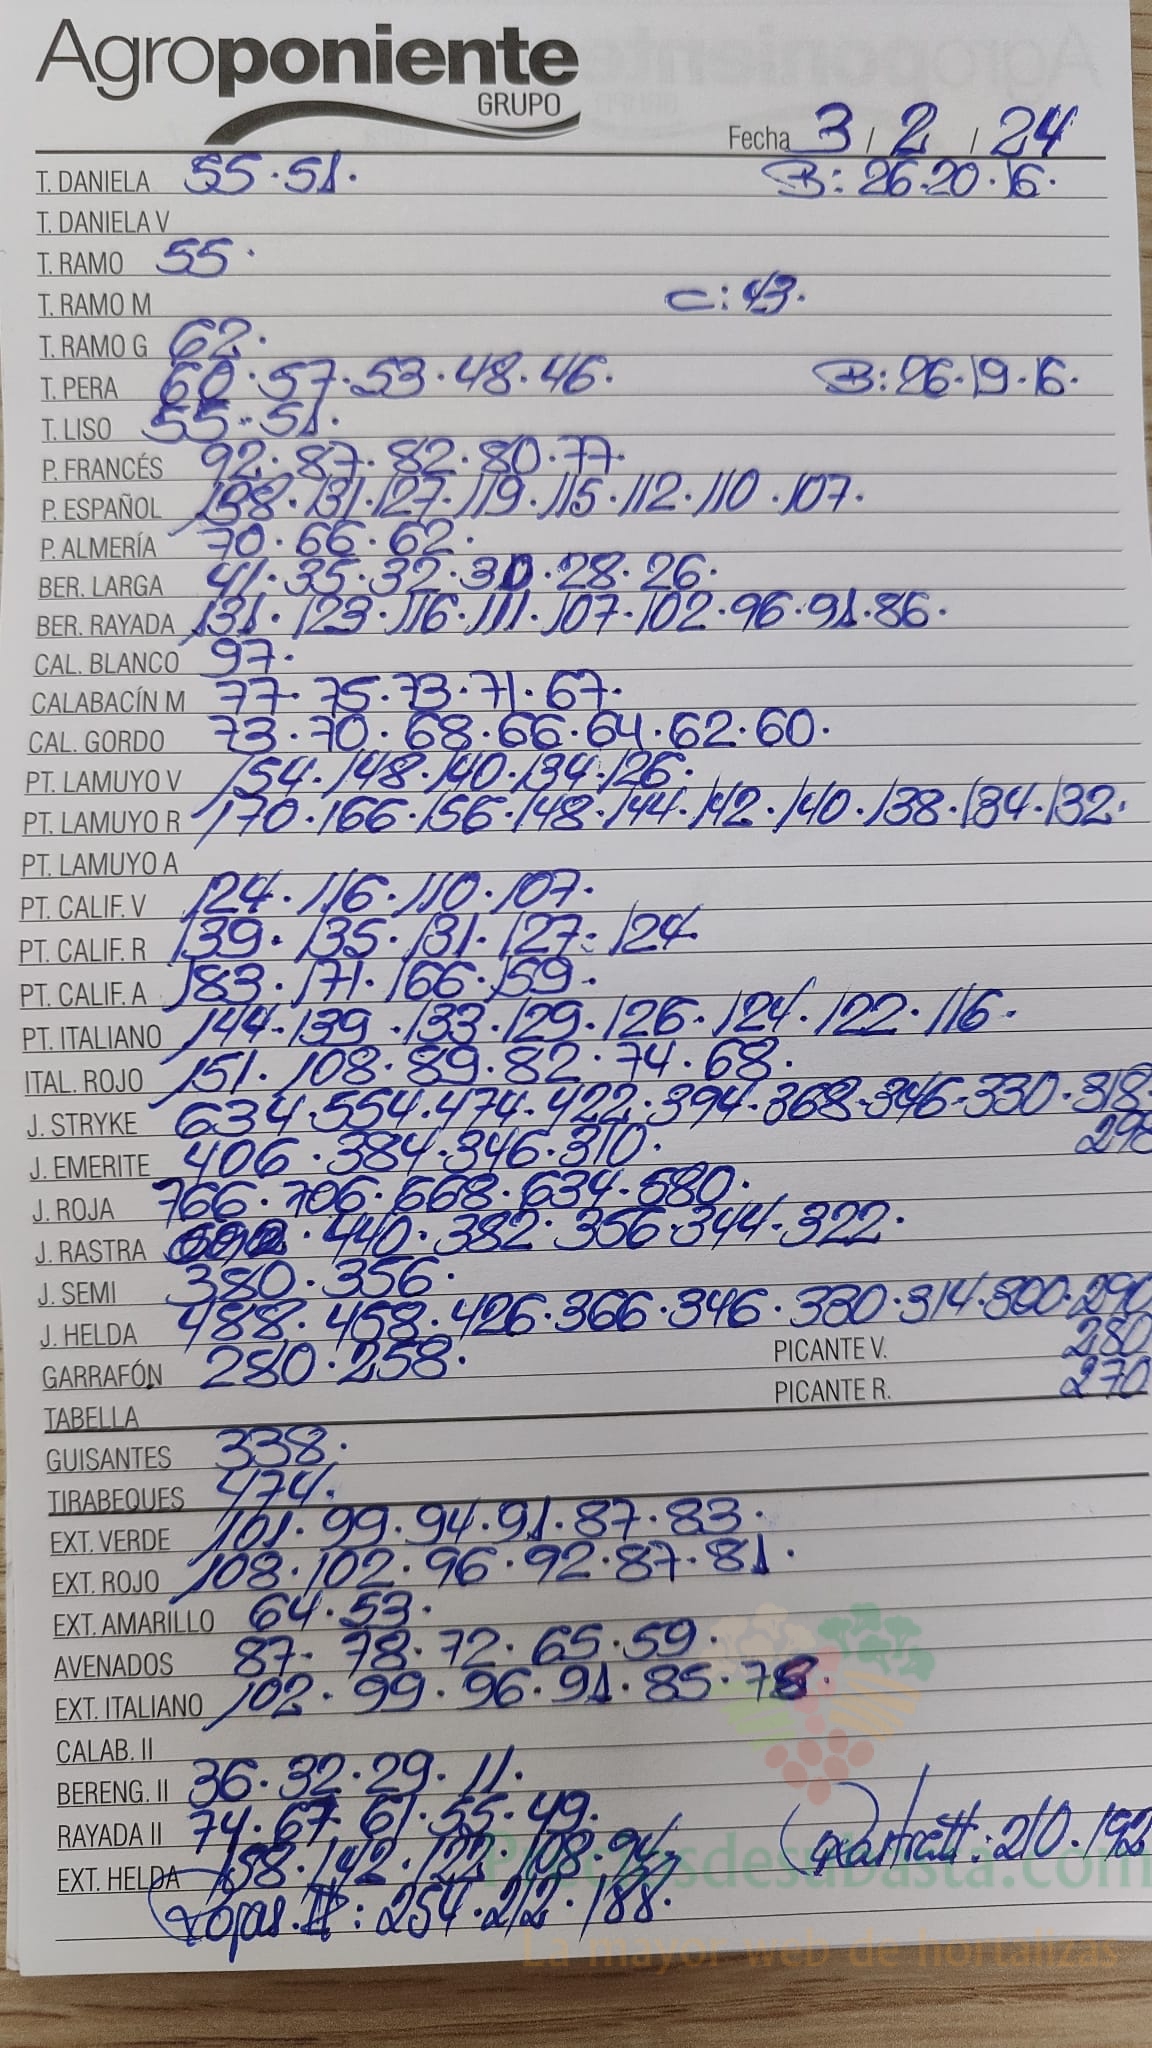 Agroponiente
GRUPO
Fecha 3 / 2 / 24
T. DANIELA 55·51· B: 26·20·16·
T. DANIELA V
T. RAMO 55·
T. RAMO M C: 43·
T. RAMO G 62·
T. PERA 60·57·53·48·46· B: 26·19·16·
T. LISO 55·51·
P. FRANCÉS 92·87·82·80·77·
P. ESPAÑOL 138·131·127·119·115·112·110·107·
P. ALMERÍA 70·66·62·
BER. LARGA 41·35·32·30·28·26·
BER. RAYADA 131·123·116·111·107·102·96·91·86·
CAL. BLANCO 97·
CALABACÍN M 77·75·73·71·67·
CAL. GORDO 73·70·68·66·64·62·60·
PT. LAMUYO V 154·148·140·134·126·
PT. LAMUYO R 170·166·156·148·144·142·140·138·134·132·
PT. LAMUYO A
PT. CALIF. V 124·116·110·107·
PT. CALIF. R 139·135·131·127·124·
PT. CALIF. A 183·171·166·159·
PT. ITALIANO 144·139·133·129·126·124·122·116·
ITAL. ROJO 151·108·89·82·74·68·
J. STRYKE 634·554·474·422·394·368·346·330·318·
298
J. EMERITE 406·384·346·310·
J. ROJA 766·706·668·634·580·
J. RASTRA ·440·382·356·344·322·
J. SEMI 380·356·
J. HELDA 488·458·426·366·346·330·314·300·290
PICANTE V. 280
GARRAFÓN 280·258·
PICANTE R. 270
TABELLA
GUISANTES 338·
TIRABEQUES 474·
EXT. VERDE 101·99·94·91·87·83·
EXT. ROJO 108·102·96·92·87·81·
EXT. AMARILLO 64·53·
AVENADOS 87·78·72·65·59·
EXT. ITALIANO 102·99·96·91·85·78·
CALAB. II
BERENG. II 36·32·29·11·
RAYADA II 74·67·61·55·49·
EXT. HELDA 158·142·122·108·94·
: 210·192
Rojas II: 254·212·188·
La mayor web de hortalizas